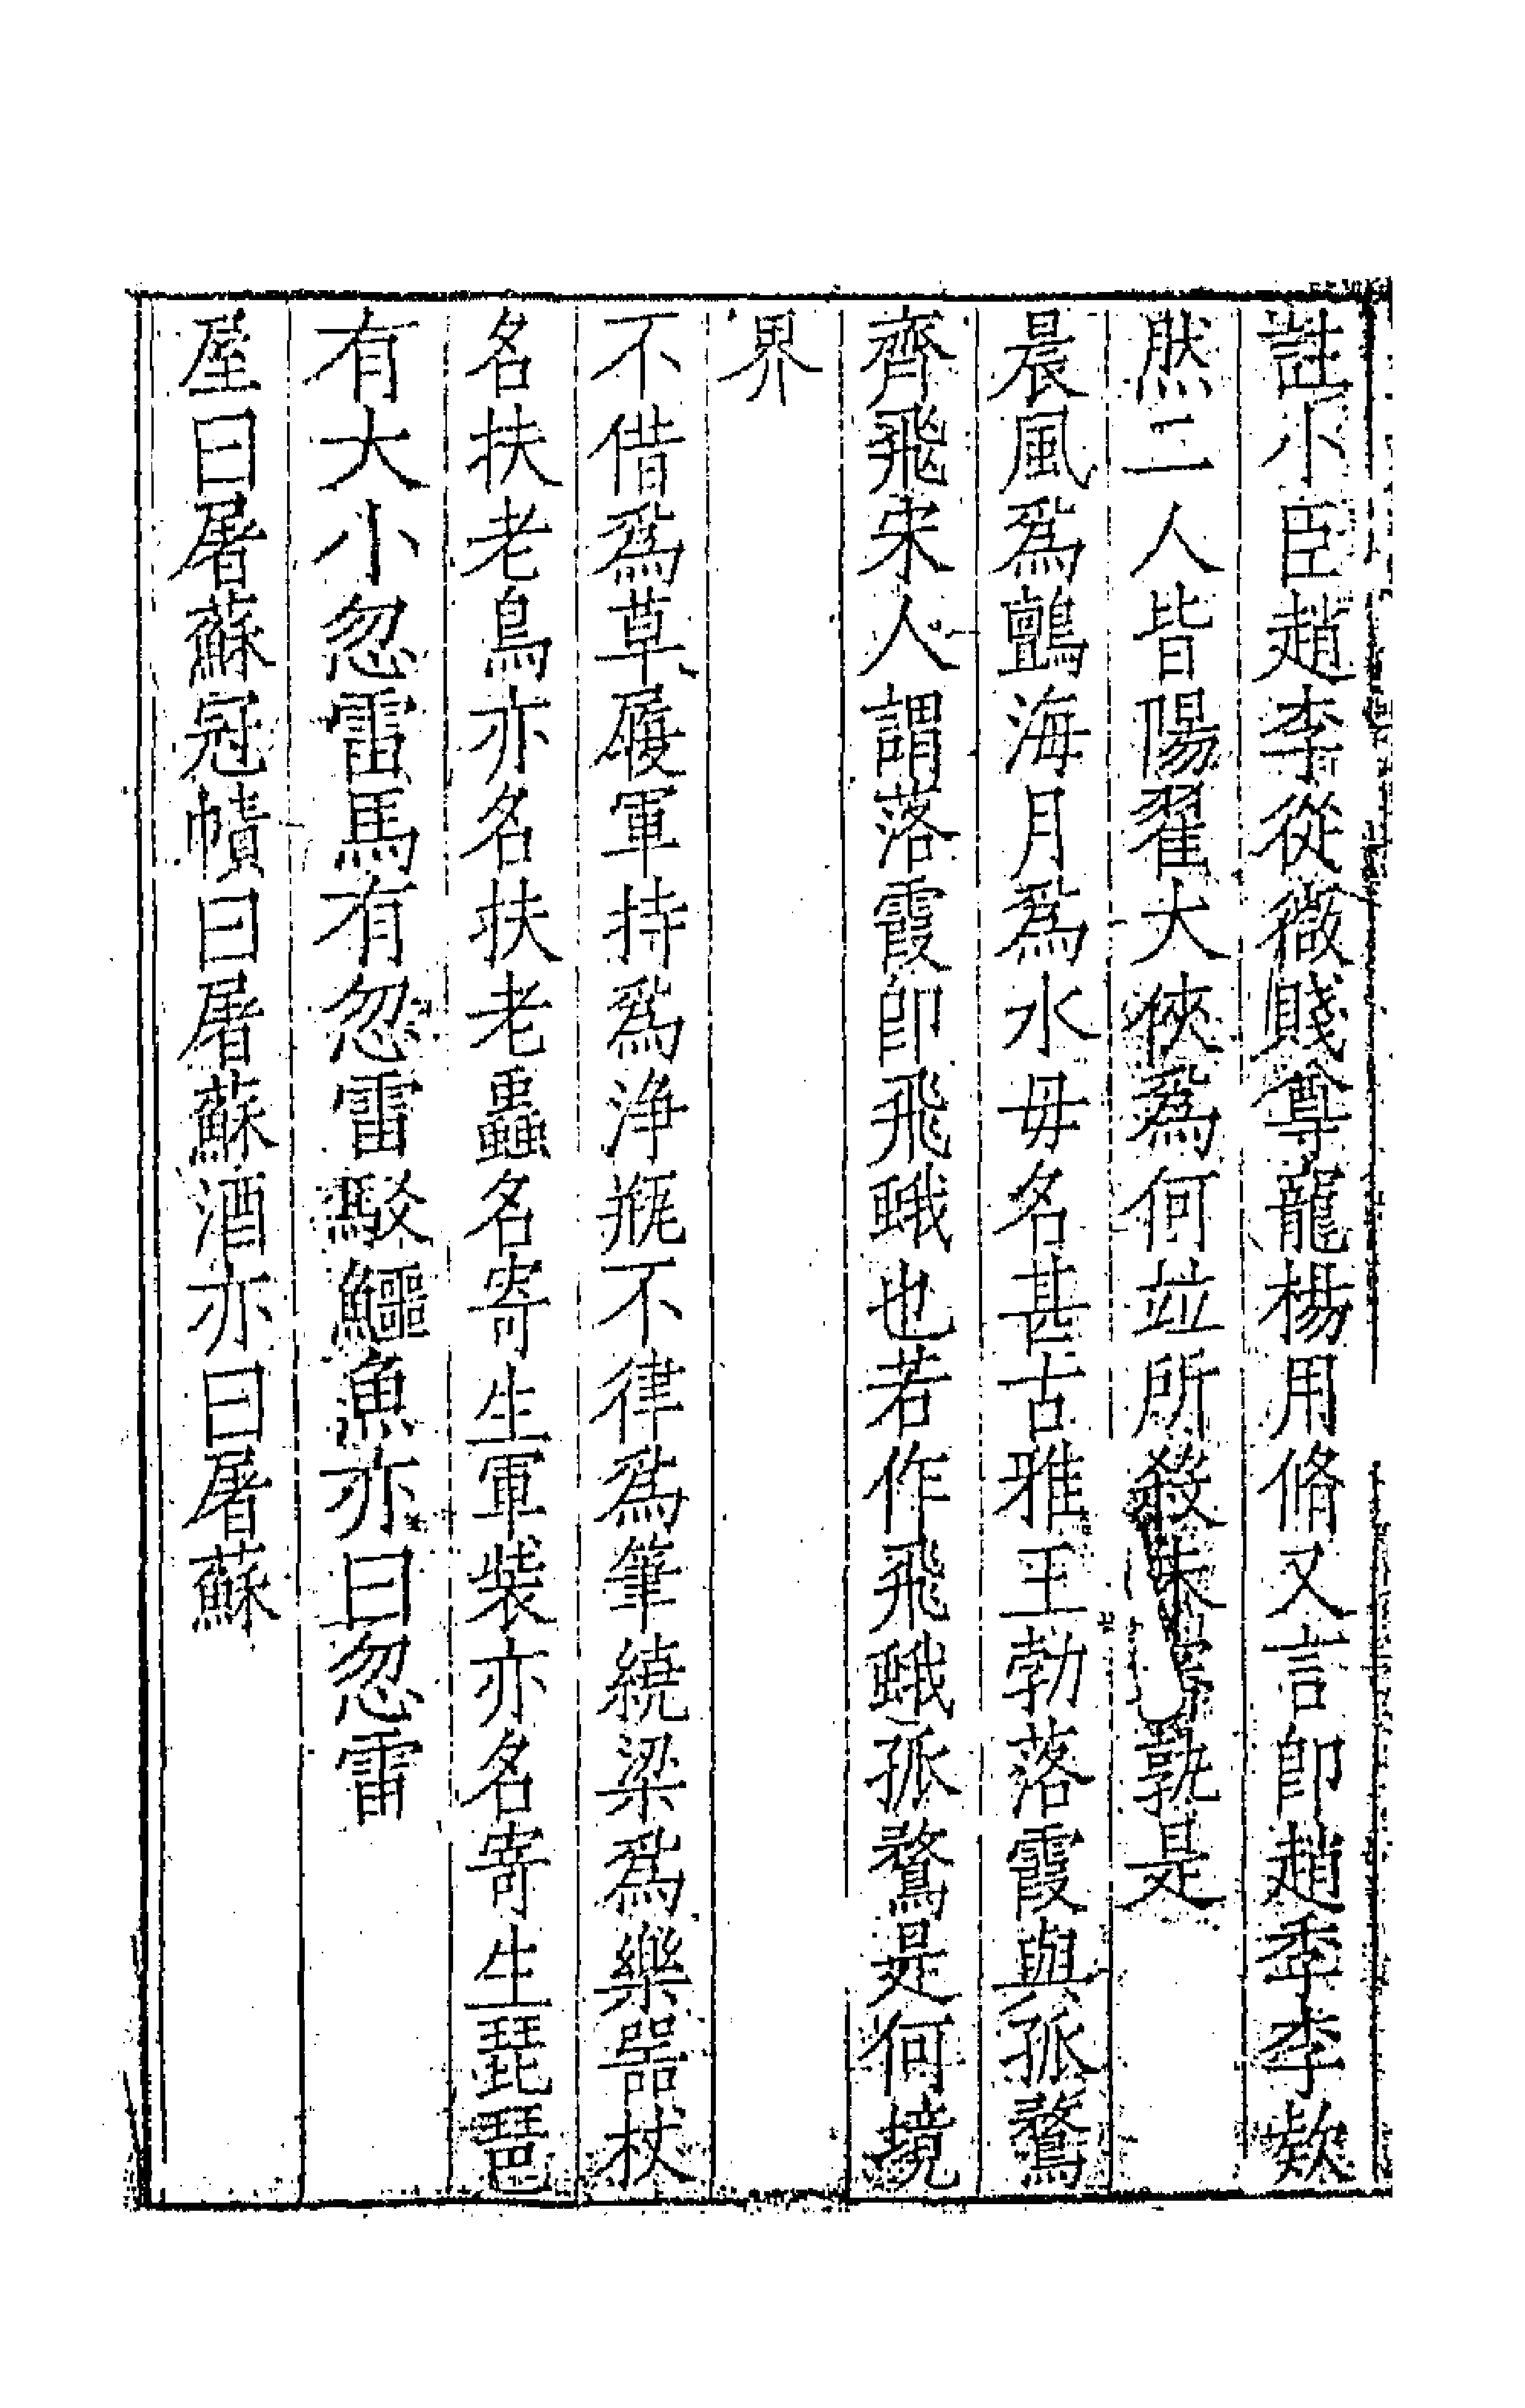 註小臣趙李從微賤尊龍楊用脩又言卽趙季李欵
然二人皆陽翟大俠爲何竝所殺未孰是
晨風爲鸇海月爲水母名甚古雅王勃落霞與孤鶩
齊飛宋人謂落霞卽飛蛾也若作飛蛾孤鶩是何境
界
不借爲草履軍持爲淨瓶不律爲筆繞梁爲樂器杖
名扶老鳥亦名扶老蟲名寄生軍裝亦名寄生琵琶
有大小忽雷馬有忽雷駁鱷魚亦曰忽雷
屋曰屠蘇冠幘曰屠蘇酒亦曰屠蘇